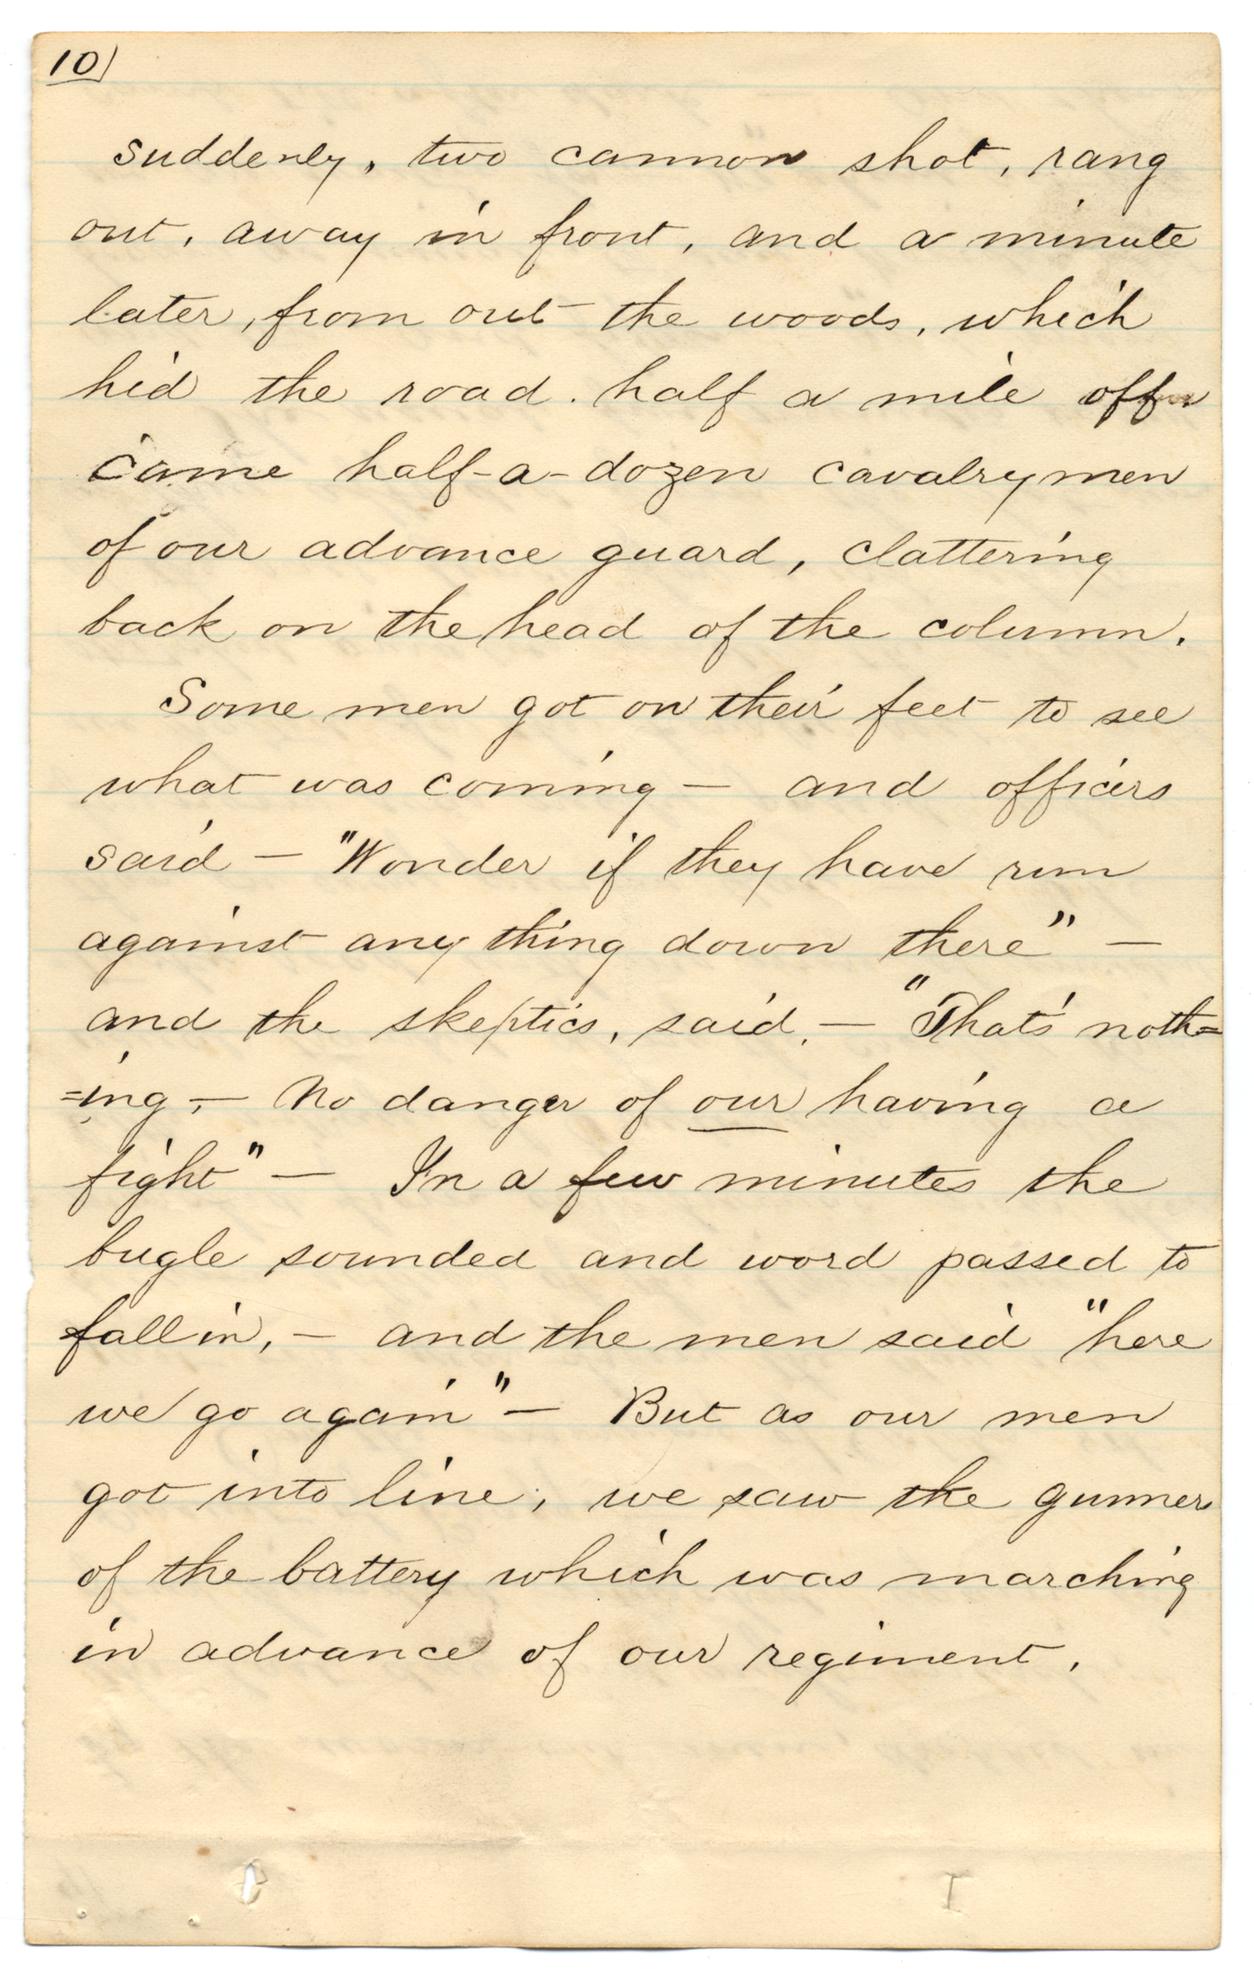 10)
suddenly, two cannon shot, rang
out, away in front, and a minute
later, from out the woods, which
hid the road. half a mile off,
came half-a-dozen cavalrymen
of our advance guard, clattering
back on the head of the column.
Some men got on their feet to see
what was coming — and officers
said — "Wonder if they have run
against any thing down there" —
and the skeptics, said, — "That's noth=
=ing, — No danger of our having a
fight" — In a few minutes the
bugle sounded and word passed to
fall in, — and the men said "here
we go again" — But as our men
got into line, we saw the gunners
of the battery which was marching
in advance of our regiment,